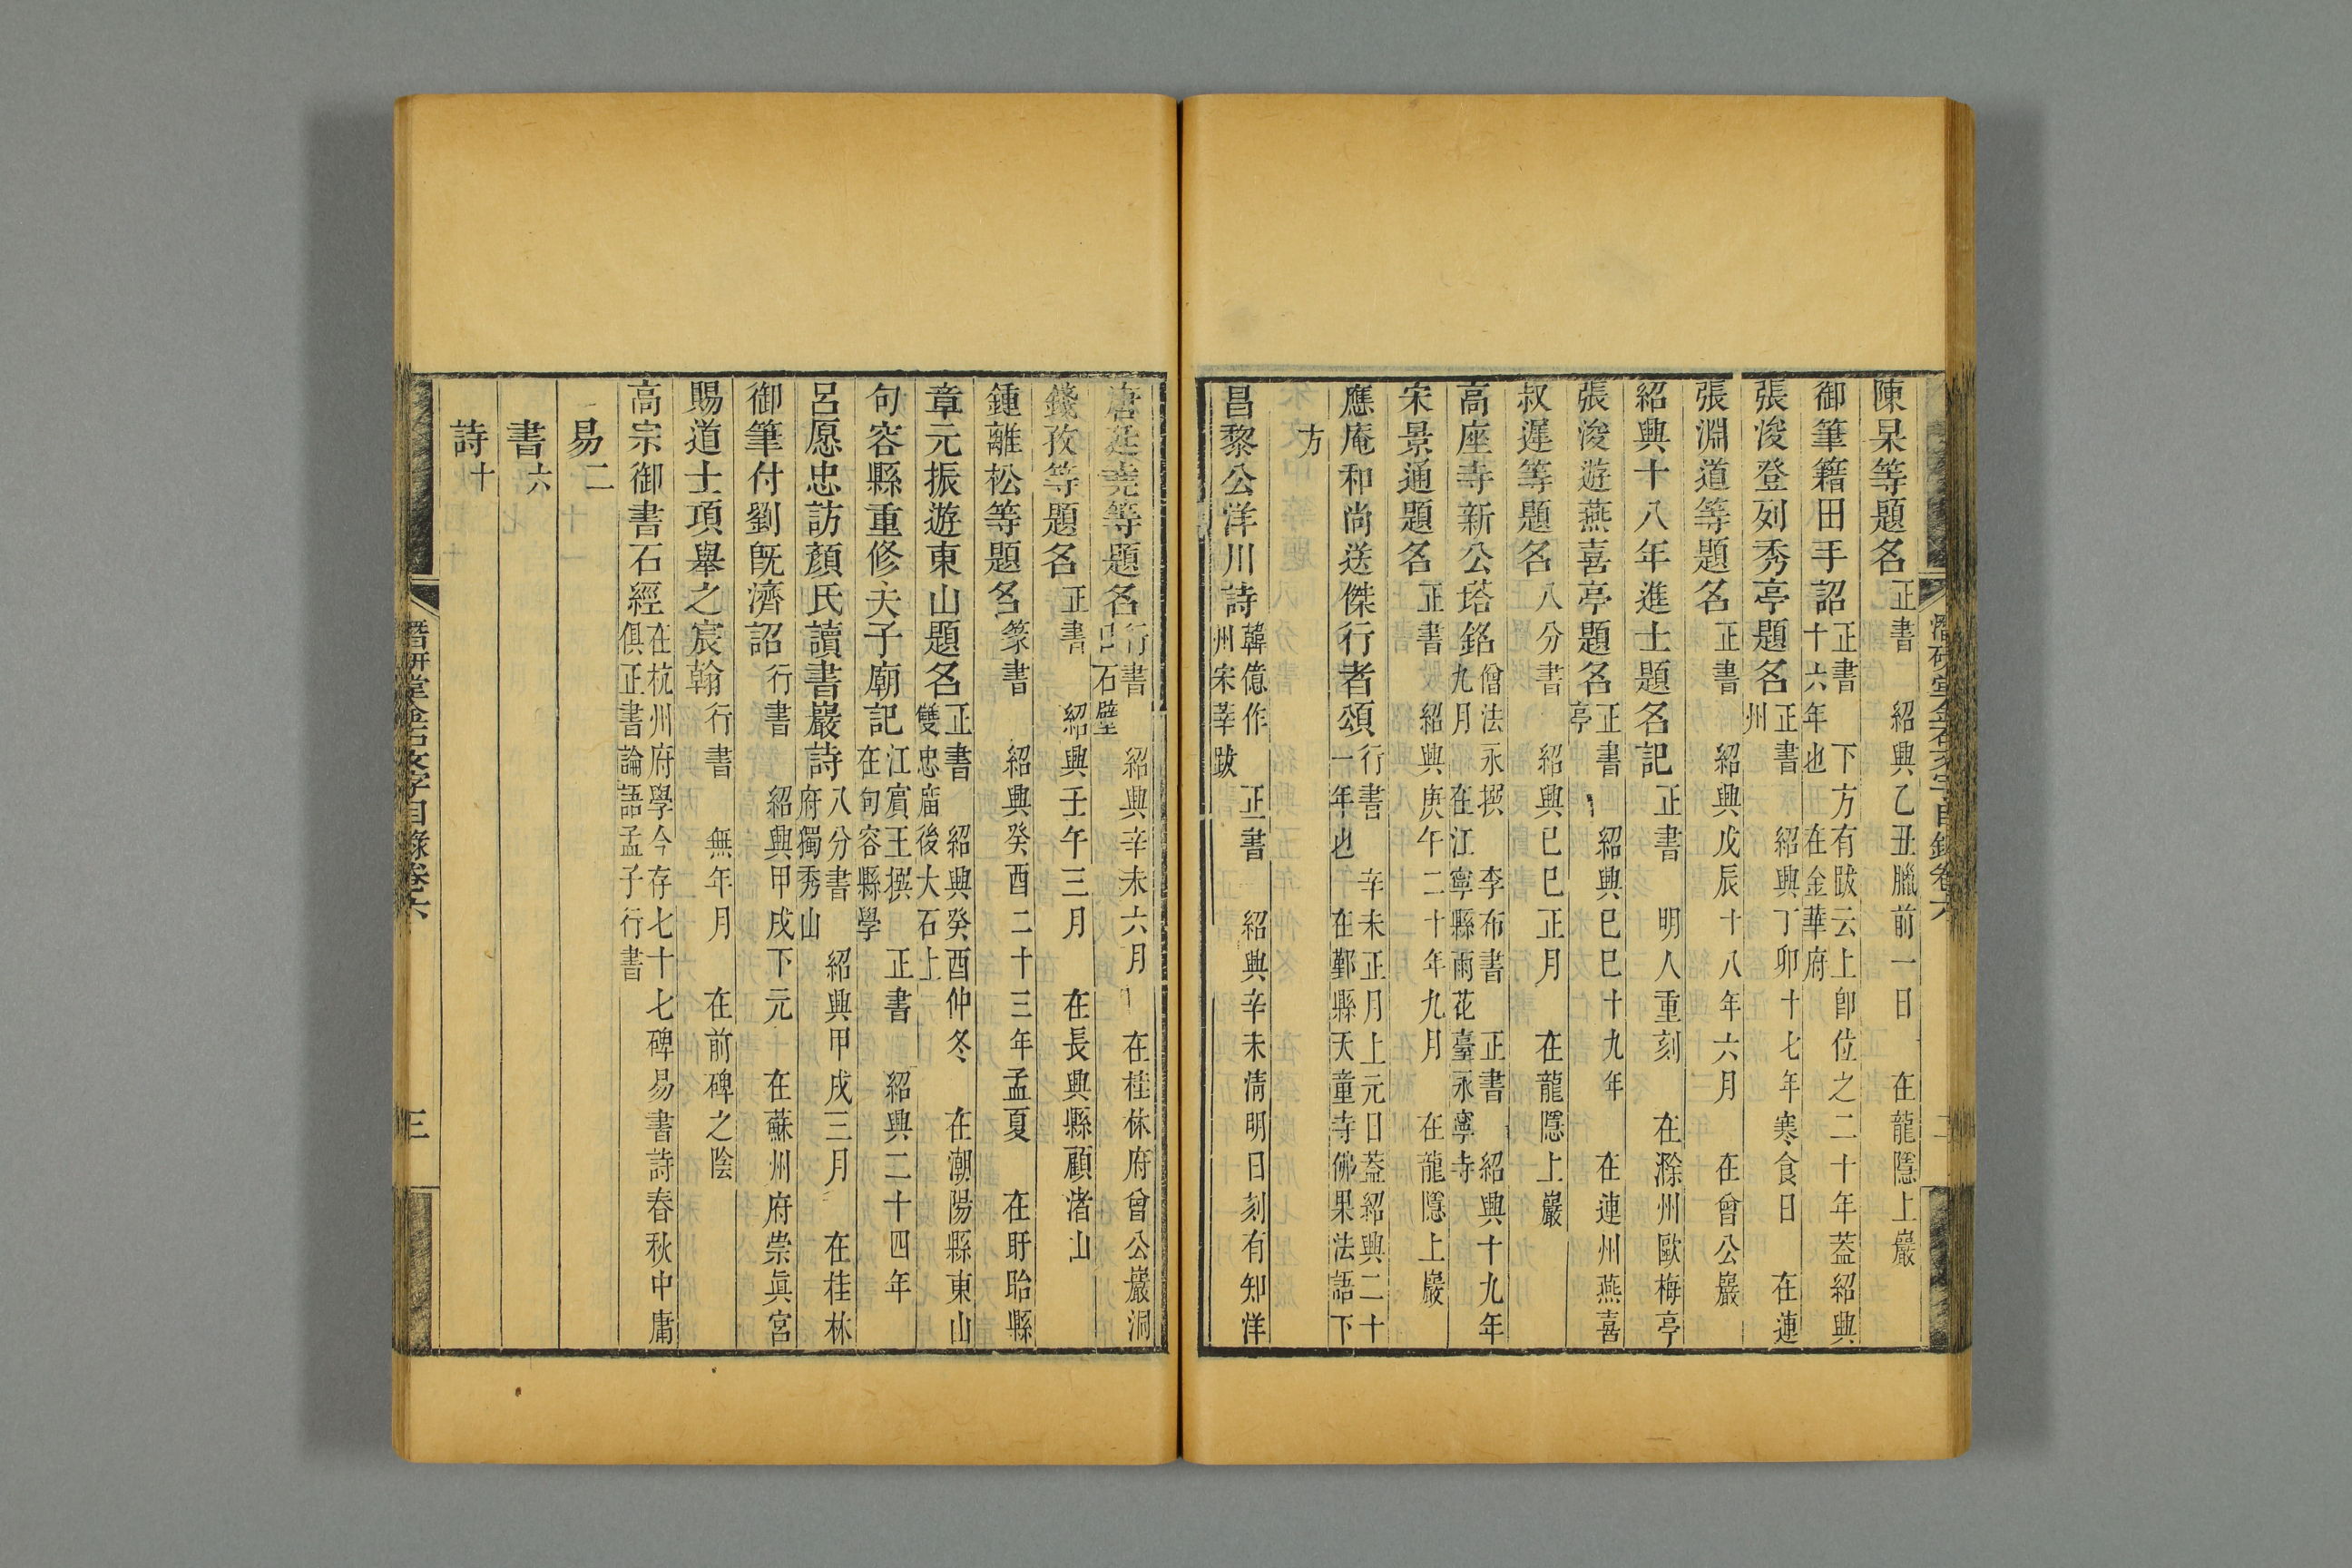 陳杲等題名 正書 紹興乙丑臘前一日 在龍隱上巖
御筆籍田手詔 正書 下方有跋云上卽位之二十年葢紹興
十六年也 在金華府
張浚登列秀亭題名 正書 紹興丁卯十七年寒食日 在連
州
張淵道等題名 正書 紹興戊辰十八年六月 在曾公巖
紹興十八年進士題名記 正書 明人重刻 在滁州歐梅亭
張浚遊燕喜亭題名 正書 紹興巳巳十九年 在連州燕喜
亭
叔遲等題名 八分書 紹興巳巳正月 在龍隱上巖
高座寺新公塔銘 僧法永撰 李布書 正書 紹興十九年
九月 在江寧縣雨花臺永寧寺
宋景通題名 正書 紹興庚午二十年九月 在龍隱上巖
應庵和尚送傑行者頌 行書 辛未正月上元日葢紹興二十
一年也 在鄞縣天童寺佛果法語下
方
昌黎公洋川詩 韓億作 正書 紹興辛未淸明日刻有知洋
州宋莘跋
潛硏堂金石文字目錄卷六 二
唐廷堯等題名 行書 紹興辛未六月 在桂林府曾公巖洞
口石壁
錢孜等題名 正書 紹興壬午三月 在長興縣顧渚山
鍾離松等題名 篆書 紹興癸酉二十三年孟夏 在盱眙縣
章元振遊東山題名 正書 紹興癸酉仲冬 在潮陽縣東山
雙忠庿後大石上
句容縣重修夫子廟記 江賓王撰 正書 紹興二十四年
在句容縣學
呂愿忠訪顏氏讀書巖詩 八分書 紹興甲戌三月 在桂林
府獨秀山
御筆付劉旣濟詔 行書 紹興甲戌下元 在蘇州府崇眞宮
賜道士項舉之宸翰 行書 無年月 在前碑之陰
高宗御書石經 在杭州府學今存七十七碑易書詩春秋中庸
俱正書論語孟子行書
易二
書六
詩十
潛硏堂金石文字目錄卷六 三